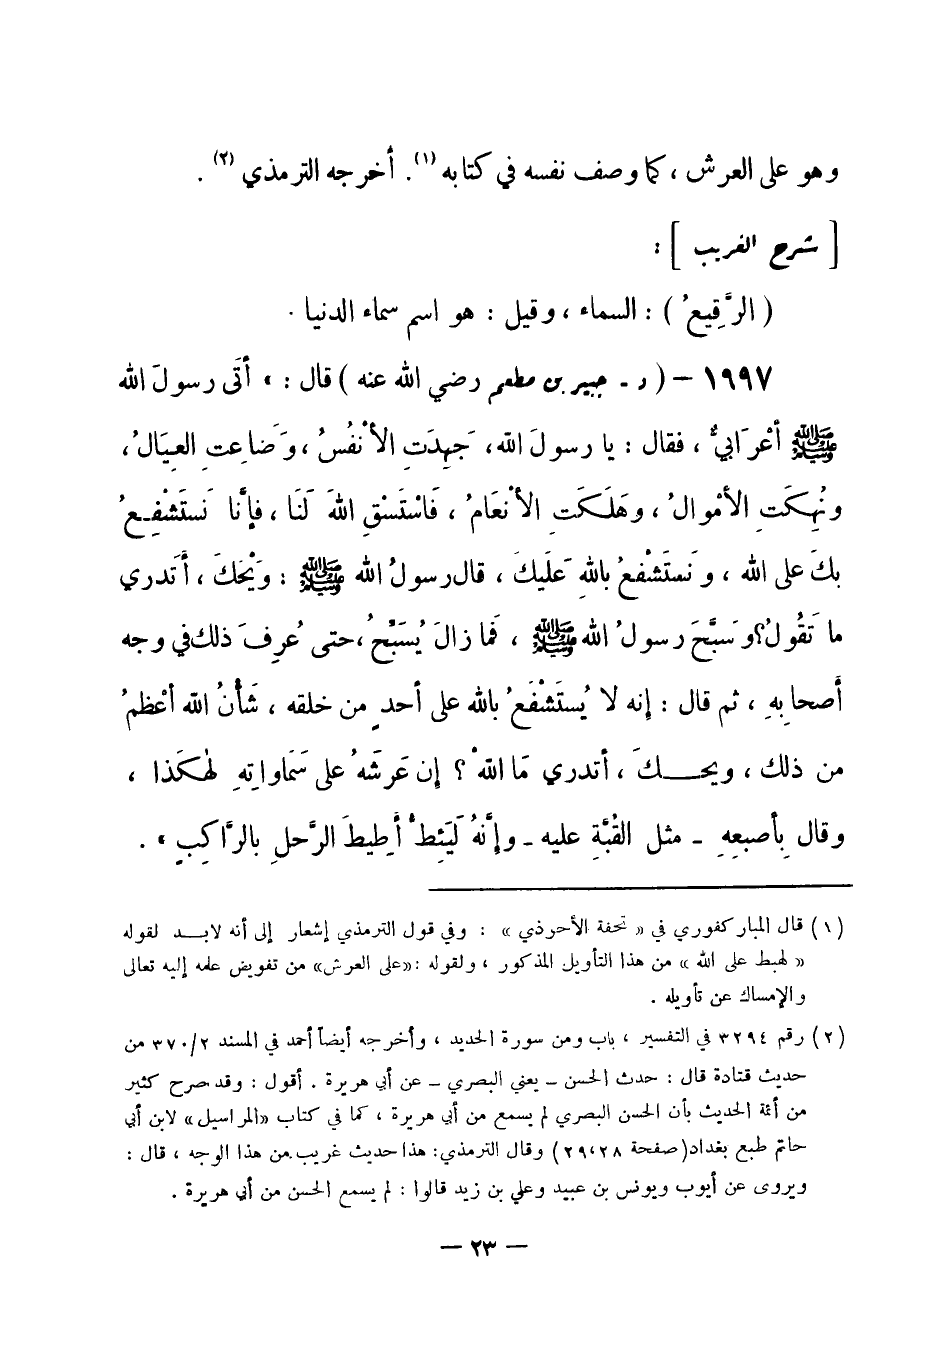 وهو على العرش ، كما وصف نفسه في كتابه (١). أخرجه الترمذي (٢) .
[ شرح الغريب ] :
( الرَّقِيعُ ) : السماء ، وقيل : هو اسم سماء الدنيا .
١٩٩٧ – ( د - جبير بن مطعم رضي الله عنه ) قال : « أتَى رسولَ الله
ﷺ أعْرَابيٌّ ، فقال : يا رسولَ الله ، جَهِدَتِ الأنْفُسُ ، وَضَاعتِ العِيَالُ ،
ونُهِكَتِ الأمْوالُ ، وهَلَكَتِ الأنْعَامُ ، فَاسْتَسْقِ اللهَ لَنَا ، فإنَّا نَستَشْفِعُ
بكَ على الله ، ونَستَشْفعُ باللهِ عَلَيكَ ، قال رسولُ الله ﷺ : وَيْحَكَ ، أَتَدري
ما تَقُولُ؟ وسَبَّحَ رسولُ الله ﷺ ، فَما زالَ يُسَبِّحُ ، حتى عُرِفَ ذلك في وجه
أَصحابِهِ ، ثم قال : إنه لا يُستَشْفَعُ بالله على أحدٍ من خلقه ، شَأْنُ الله أعْظمُ
من ذلك ، ويحـــكَ ، أتدري مَا اللهُ ؟ إن عَرشَهُ على سَمَاواتِهِ لَهكَذا ،
وقال بِأصبعِهِ - مثل القُبَّةِ عليه - وإنَّهُ لَيَئِطُّ أَطِيطَ الرَّحلِ بالرَّاكِبِ » .
(١) قال المباركفوري في « تحفة الأحوذي » : وفي قول الترمذي إشعار إلى أنه لابـــد لقوله
« لهبط على الله » من هذا التأويل المذكور ، ولقوله : «على العرش» من تفويض علمه إليه تعالى
والإمساك عن تأويله .
(٢) رقم ٣٢٩٤ في التفسير ، باب ومن سورة الحديد ، وأخرجه أيضاً أحمد في المسند ٣٧٠/٢ من
حديث قتادة قال : حدث الحسن – يعني البصري – عن أبي هريرة . أقول : وقد صرح كثير
من أئمة الحديث بأن الحسن البصري لم يسمع من أبي هريرة ، كما في كتاب «المراسيل» لابن أبي
حاتم طبع بغداد (صفحة ٢٨ ، ٢٩) وقال الترمذي: هذا حديث غريب من هذا الوجه ، قال :
ويروى عن أيوب ويونس بن عبيد وعلي بن زيد قالوا : لم يسمع الحسن من أبي هريرة .
– ٢٣ –